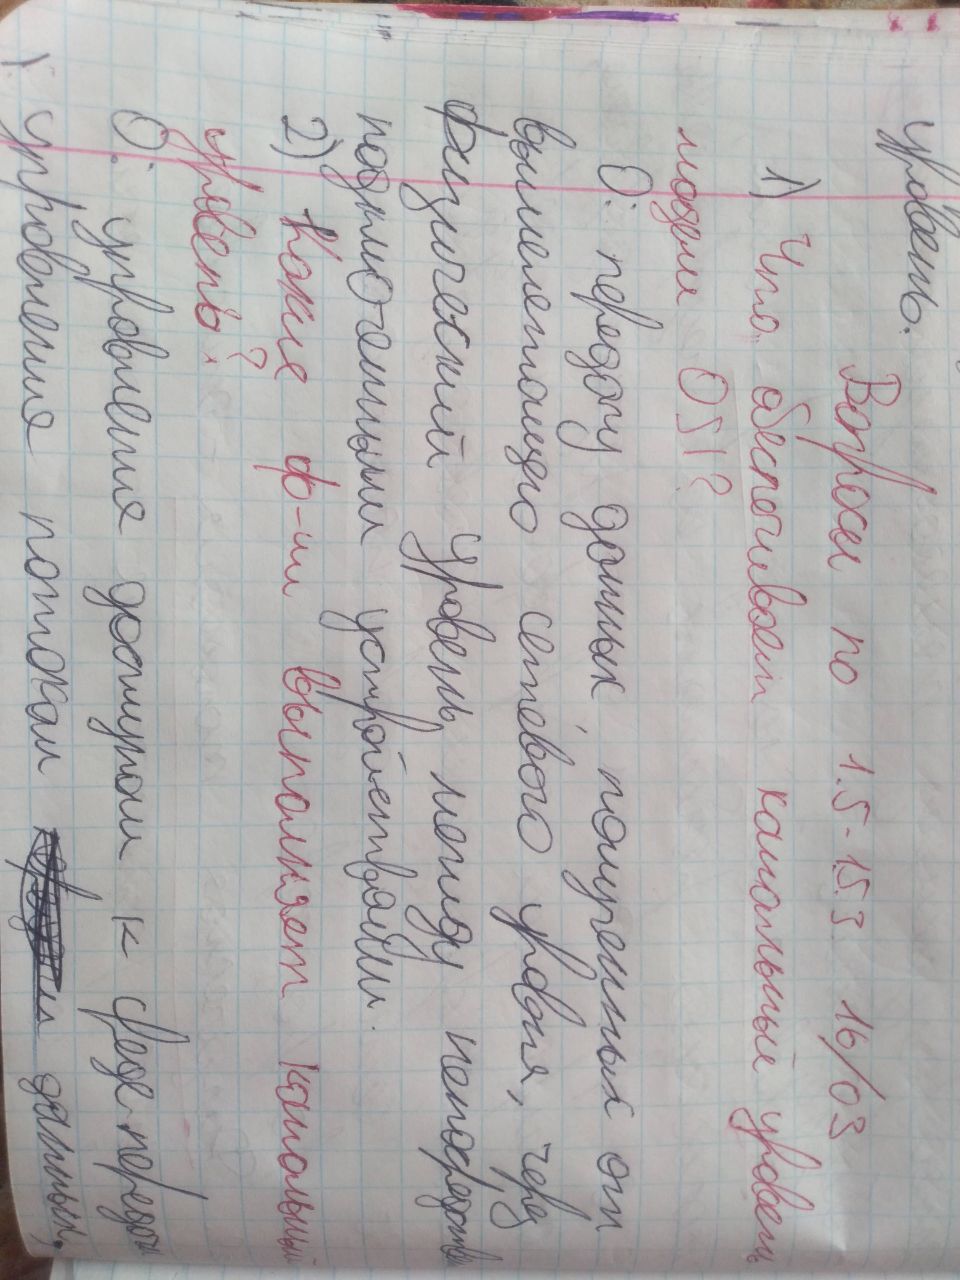 уровень.
Вопросы по 1.5-1.5.3 16/03
1) Что обеспечивает канальный уровень
модели OSI?
О: передачу данных полученных от
вышележащего сетевого уровня, через
физический уровень между непосредств
подключенными устройствами.
2) Какие ф-ии выполняет канальный
уровень?
О: управление доступом к среде передачи
управление потокам данных.